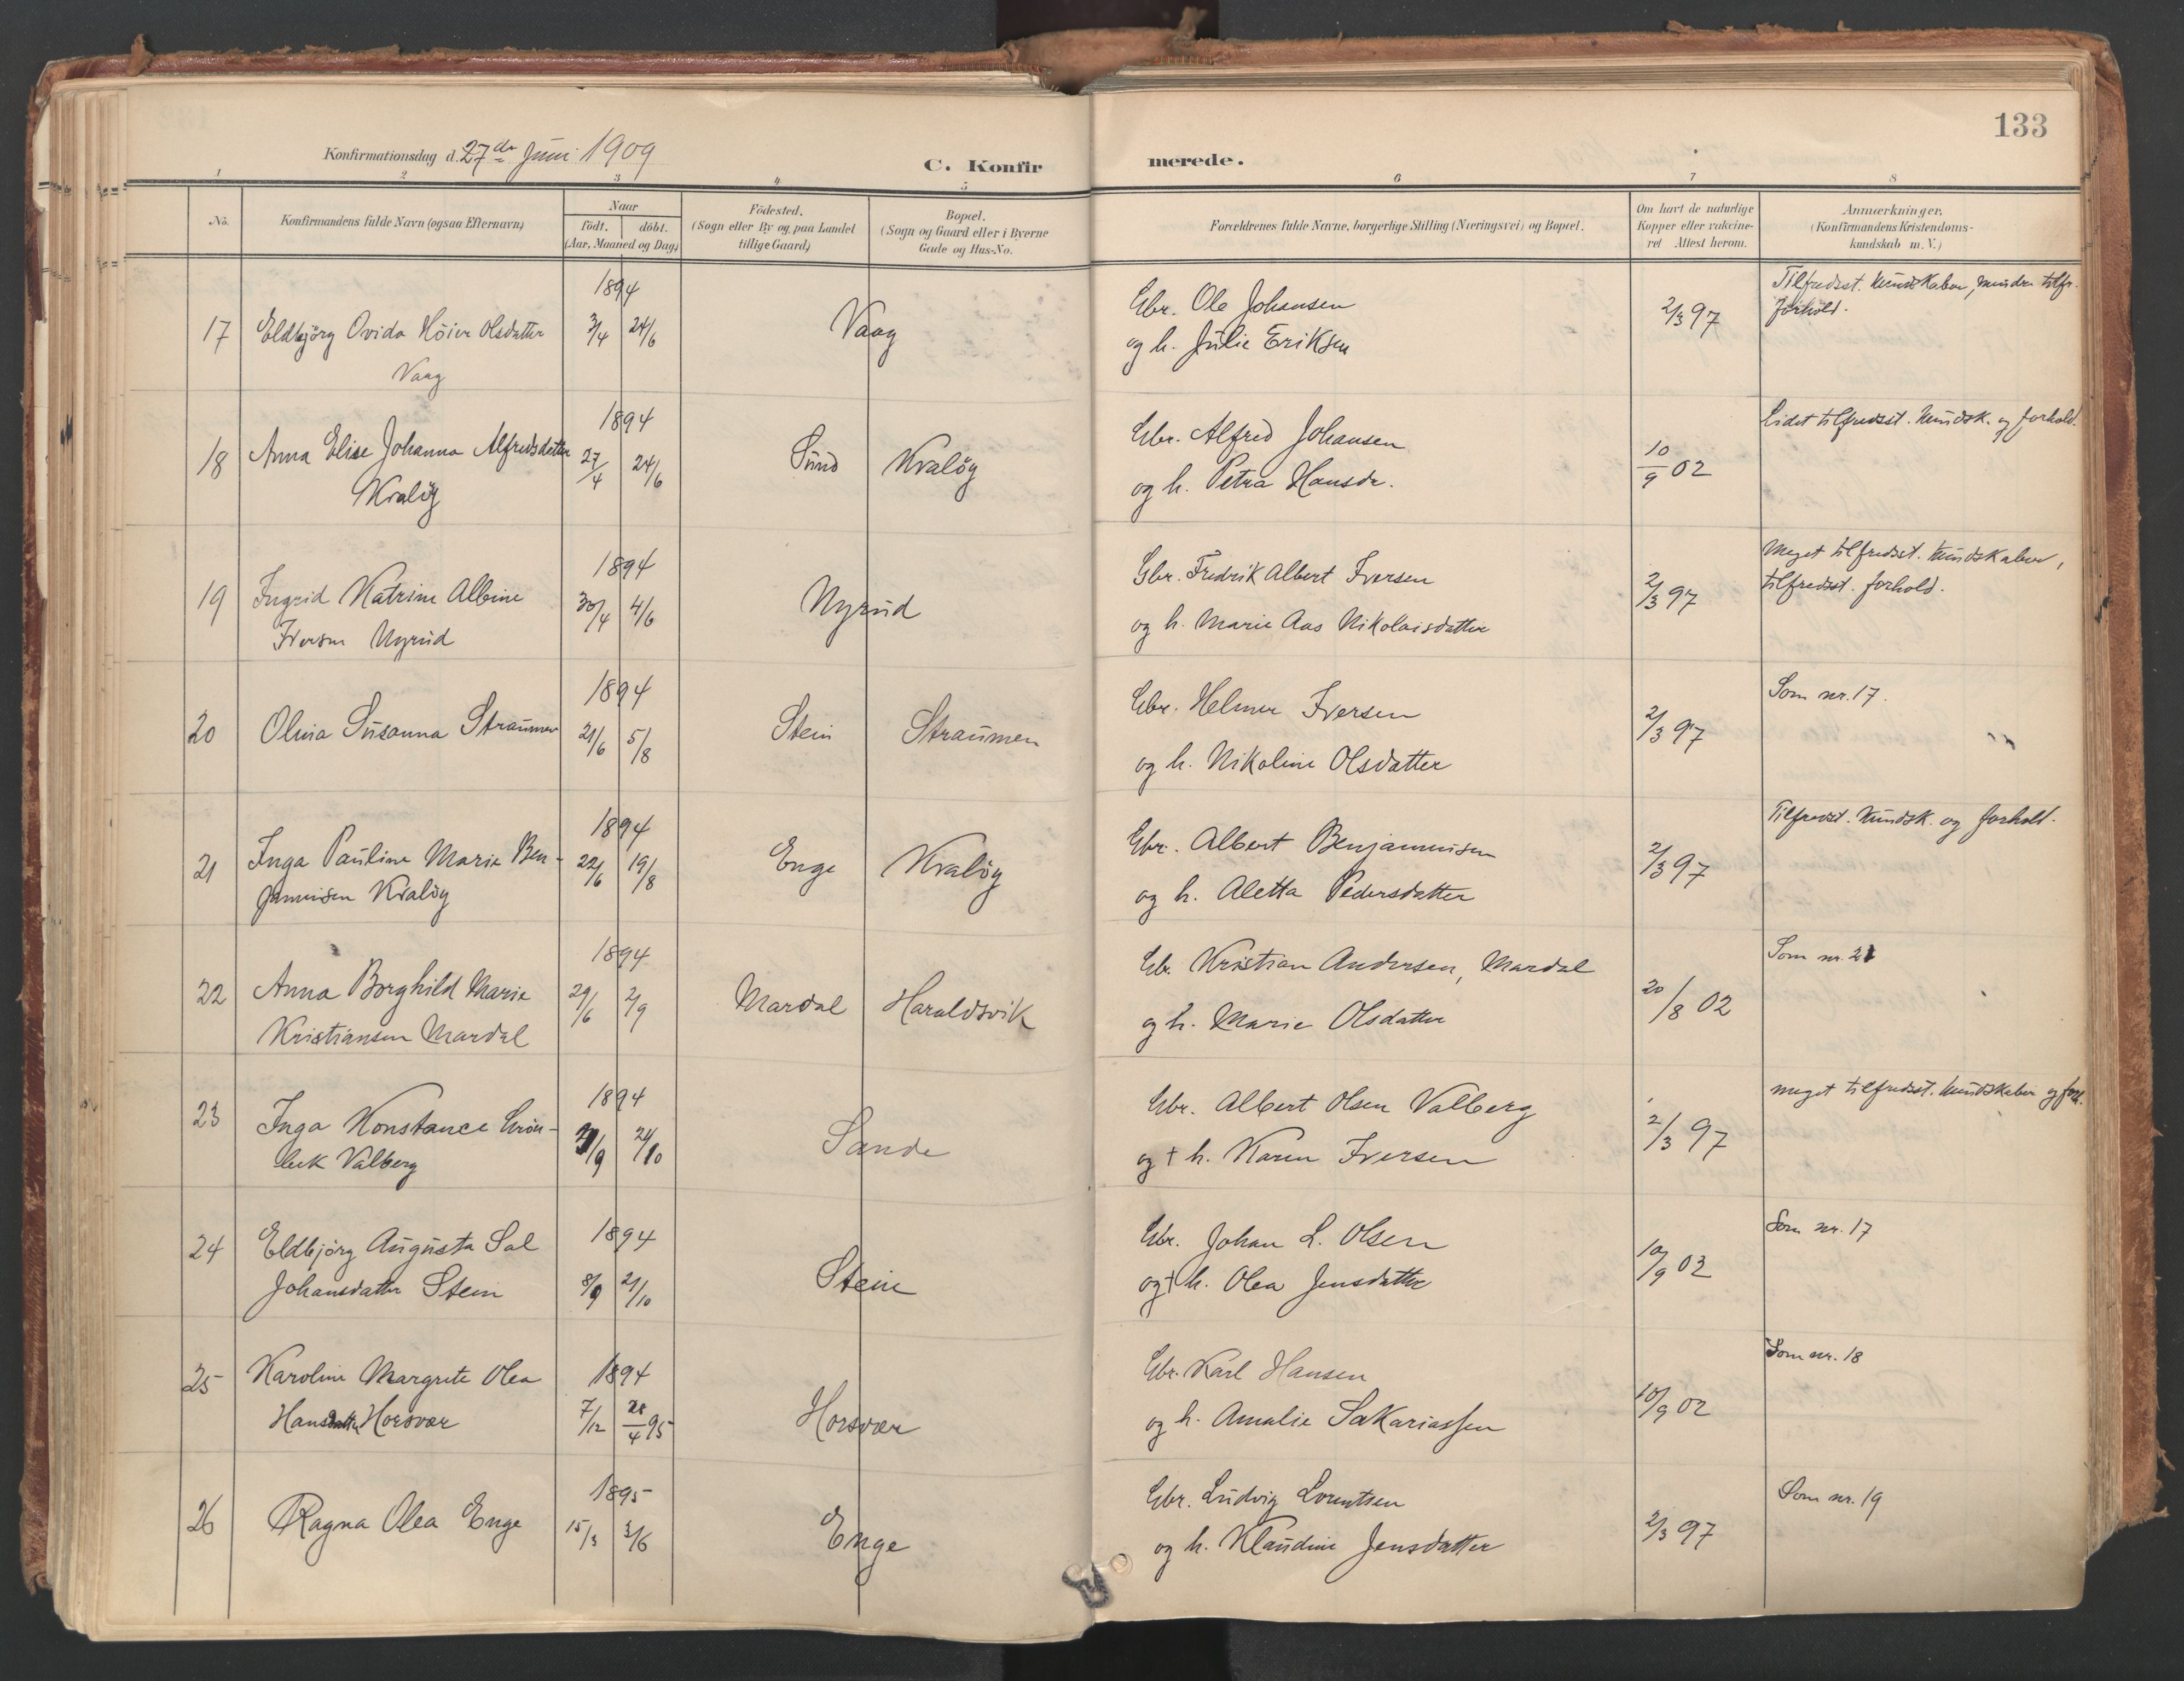 133
Konfirmationsdag d. 27de Juni 1909
C. Konfirmerede.
1 2 3 4 5 6 7 8
No.
Konfirmandens fulde Navn (ogsaa Efternavn)
Naar
födt. döbt.
(Aar, Maaned og Dag)
Födested.
(Sogn eller By og paa Landet
tillige Gaard)
Bopæl.
(Sogn og Gaard eller i Byerne
Gade og Hus-No.
Forældrenes fulde Navne, borgerlige Stilling (Næringsvei) og Bopæl.
Om havt de naturlige
Kopper eller vakcine-
ret Attest herom.
Anmærkninger.
(Konfirmandens Kristendoms-
kundskab m. V.)
17 Eldbjörg Ovida Höier Olsdatter
Vaag
1894
3/4 24/6
Vaag
Gbr. Ole Johansen
og h. Julie Eriksen
2/3 97
Tilfredsst. kundskaber, mindre tilfr.
forhold.
18 Anna Elise Johanna Alfredsdatter
Kvalög
1894
27/4 24/6
Sund Kvalög
Gbr. Alfred Johansen
og h. Petra Hansdr.
10/9 02
Lidet tilfredsst. kundsk. og forhold.
19 Ingrid Katrine Albine
Iversen Nyrud
1894
30/4 4/6
Nyrud
Gbr. Fredrik Albert Iversen
og h. Marie Aas Nikolaisdatter
2/3 97
Meget tilfredsst. kundskaber,
tilfredsst. forhold.
20 Olina Susanna Straumen
1894
21/6 5/8
Stein Straumen
Gbr. Helmer Iversen
og h. Nikoline Olsdatter
2/3 97
Som nr. 17.
21 Inga Pauline Marie Ben-
jaminsen Kvalög
1894
22/6 19/8
Enge Kvalög
Gbr. Albert Benjaminsen
og h. Aletta Pedersdatter
2/3 97
Tilfredsst. kundsk. og forhold.
22 Anna Borghild Marie
Kristiansen Mardal
1894
29/6 2/9
Mardal Haraldsvik
Gbr. Kristian Andersen, Mardal
og h. Marie Olsdatter
20/8 02
Som nr. 21
23 Inga Konstance Grön-
bek Valberg
1894
/9 /10
Sande
Gbr. Albert Olsen Valberg
og † h. Karen Iversen
2/3 97
meget tilfredsst. kundskaber og forh.
24 Eldbjörg Augusta Sal
Johansdatter Stein
1894
8/9 21/10
Stein
Gbr. Johan L. Olsen
og † h. Olea Jensdatter
10/9 03
Som nr. 17
25 Karoline Margrete Olea
Hansdatter Horsvær
1894
7/12 28/4 95
Horsvær
Gbr. Karl Hansen
og h. Amalie Sakariassen
10/9 02
Som nr. 18
26 Ragna Olea Enge
1895
15/3 3/6
Enge
Gbr. Ludvig Lorentsen
og h. Klaudine Jensdatter
2/3 97
Som nr. 19